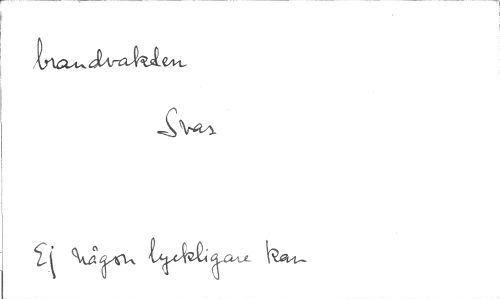 brandvakden
Svar
Ej någon lyckligare kan